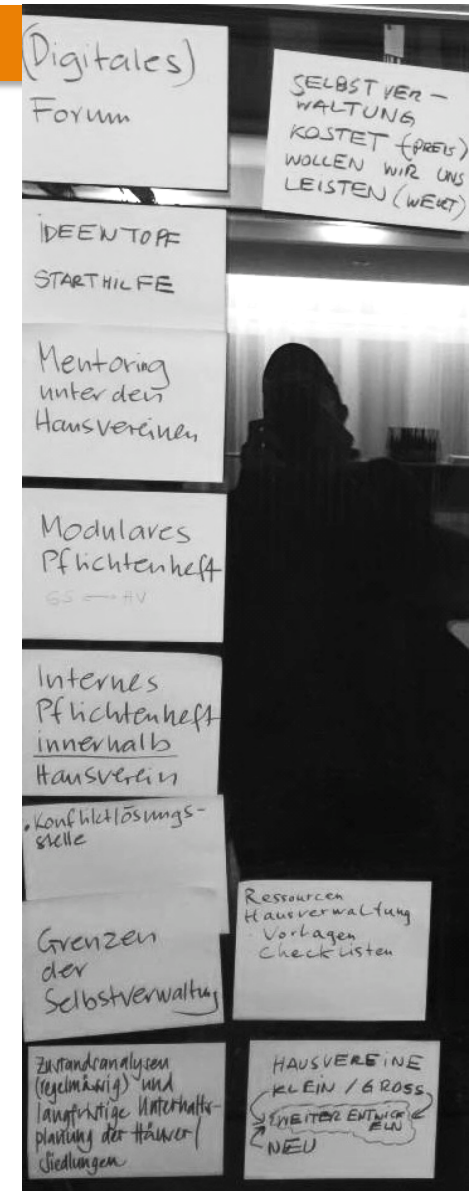 (Digitales)
Forum
SELBSTVER-
WALTUNG
KOSTET (PREIS)
WOLLEN WIR UNS
LEISTEN (WERT)
IDEENTOPF
STARTHILFE
Mentoring
unter den
Hausvereinen
Modulares
Pflichtenheft
GS ⟷ HV
Internes
Pflichtenheft
innerhalb
Hausverein
• Konfliktlösungs-
stelle
Grenzen
der
Selbstverwaltung
Ressourcen
Hausverwaltung
· Vorlagen
Checklisten
Zustandsanalysen
(regelmässig) und
langfristige Unterhalts-
planung der Häuser/
Siedlungen
HAUSVEREINE
KLEIN / GROSS
WEITER ENTWICK
ELN
NEU